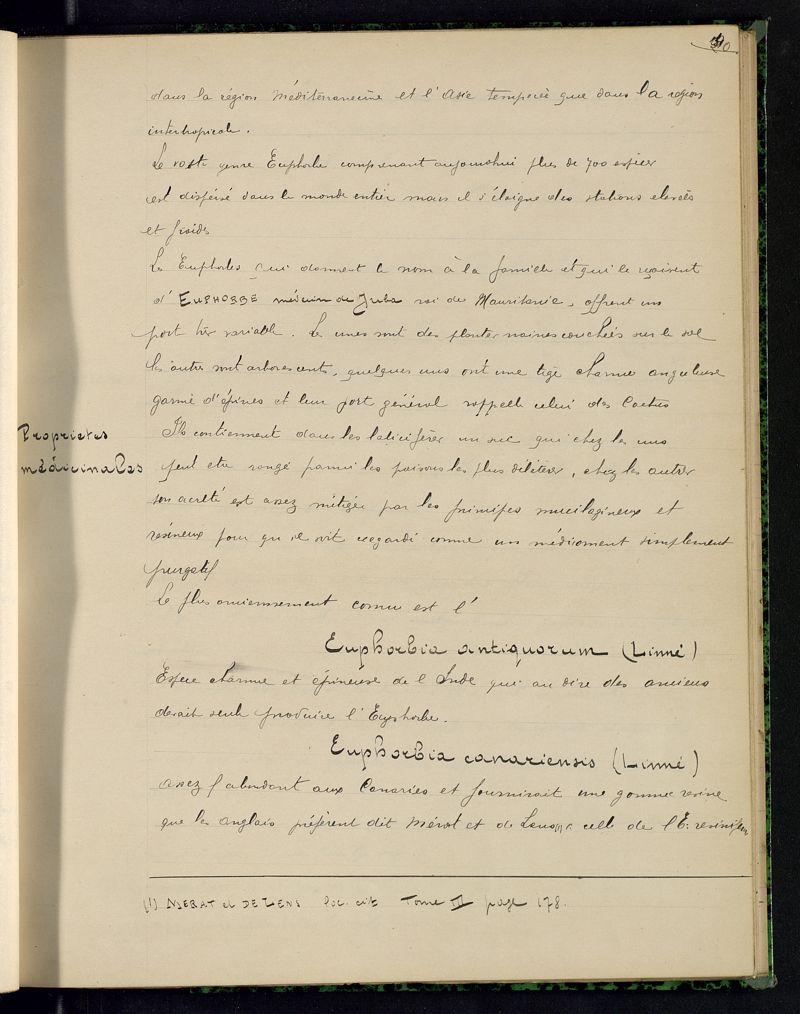 dans la région méditerranéenne et l'Asie temperée que dans la région
intertropicale.
Le vaste genre Euphorbe comprenant aujourd'hui plus de 700 espèces
est dispersé dans le monde entier mais il s'éloigne des stations elevées
et froides
Les Euphorbes qui donnent le nom à la famille et qui le reçoivent
d'EUPHORBE médecin de Juba roi de Mauritanie, offrent un
port très variable. Les unes sont des plantes naines couchées sur le sol
les autres sont arborescents, quelques uns ont une tige charnue anguleuse
garnie d'épines et leur port général rappelle celui des Cactus
Proprietes
médicinales
Ils contiennent dans les laticifères un suc qui chez les uns
peut etre rangé parmi les poisons les plus délétères, chez les autres
son acreté est assez mitigée par les principes mucilagineux et
résineux pour qu'il soit regardé comme un médicament simplement
purgatif
Le plus anciennement connu est l'
Euphorbia antiquorum (Linné)
Espece charnue et épineuse de l'Inde qui au dire des anciens
devait seule produire l'Euphorbe.
Euphorbia canariensis (Linné)
assez abondant aux Canaries et fournirait une gomme resine
que les anglais préfèrent dit Mérat et de Lens (1) a celle de l'E. resinifera
(1) MERAT et DE LENS loc. cit. Tome III page 178.